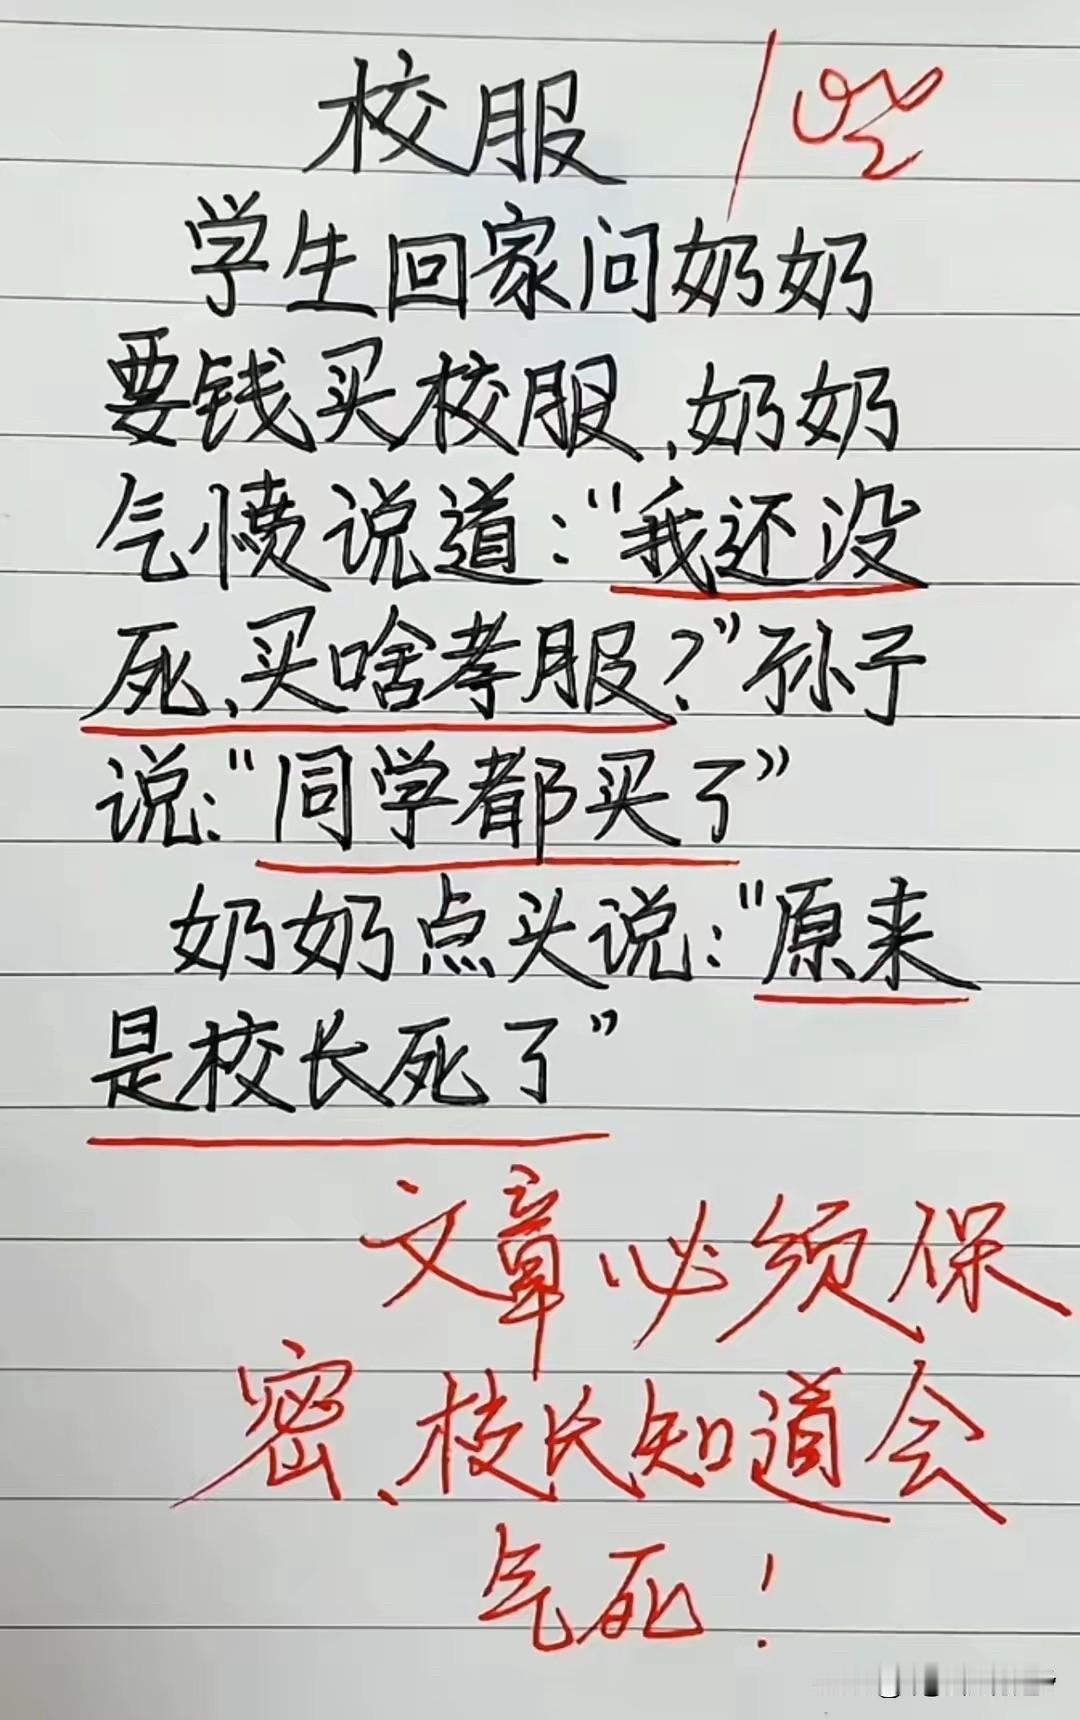 校服
学生回家问奶奶
要钱买校服,奶奶
气愤说道:“我还没
死,买啥孝服?”孙子
说:“同学都买了”
奶奶点头说:“原来
是校长死了”
文章必须保
密、校长知道会
气死!